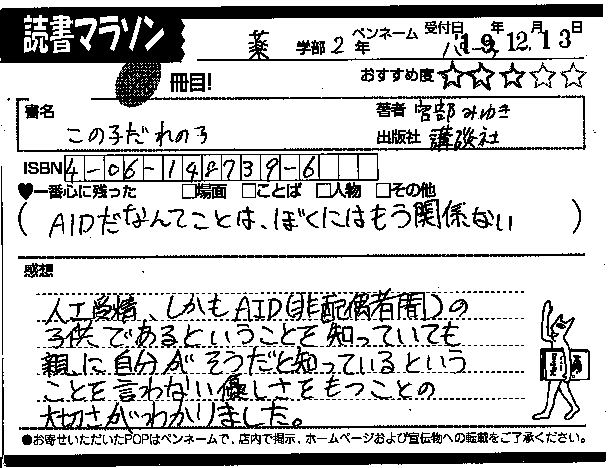 読書マラソン
薬 学部2年 ペンネーム 受付日 '19年12月13日
冊目! おすすめ度 ☆☆☆☆☆
書名 この子だれの子
著者 宮部みゆき
出版社 講談社
ISBN 4-06-148739-6
♥一番心に残った □場面 □ことば □人物 □その他
(AIDだなんてことは、ぼくにはもう関係ない)
感想
人工受精、しかもAID(非配偶者間)の
子供であるということを知っていても
親に自分がそうだと知っているという
ことを言わない優しさをもつことの
大切さがわかりました。
●お寄せいただいたPOPはペンネームで、店内で掲示、ホームページおよび宣伝物への転載をご了承ください。